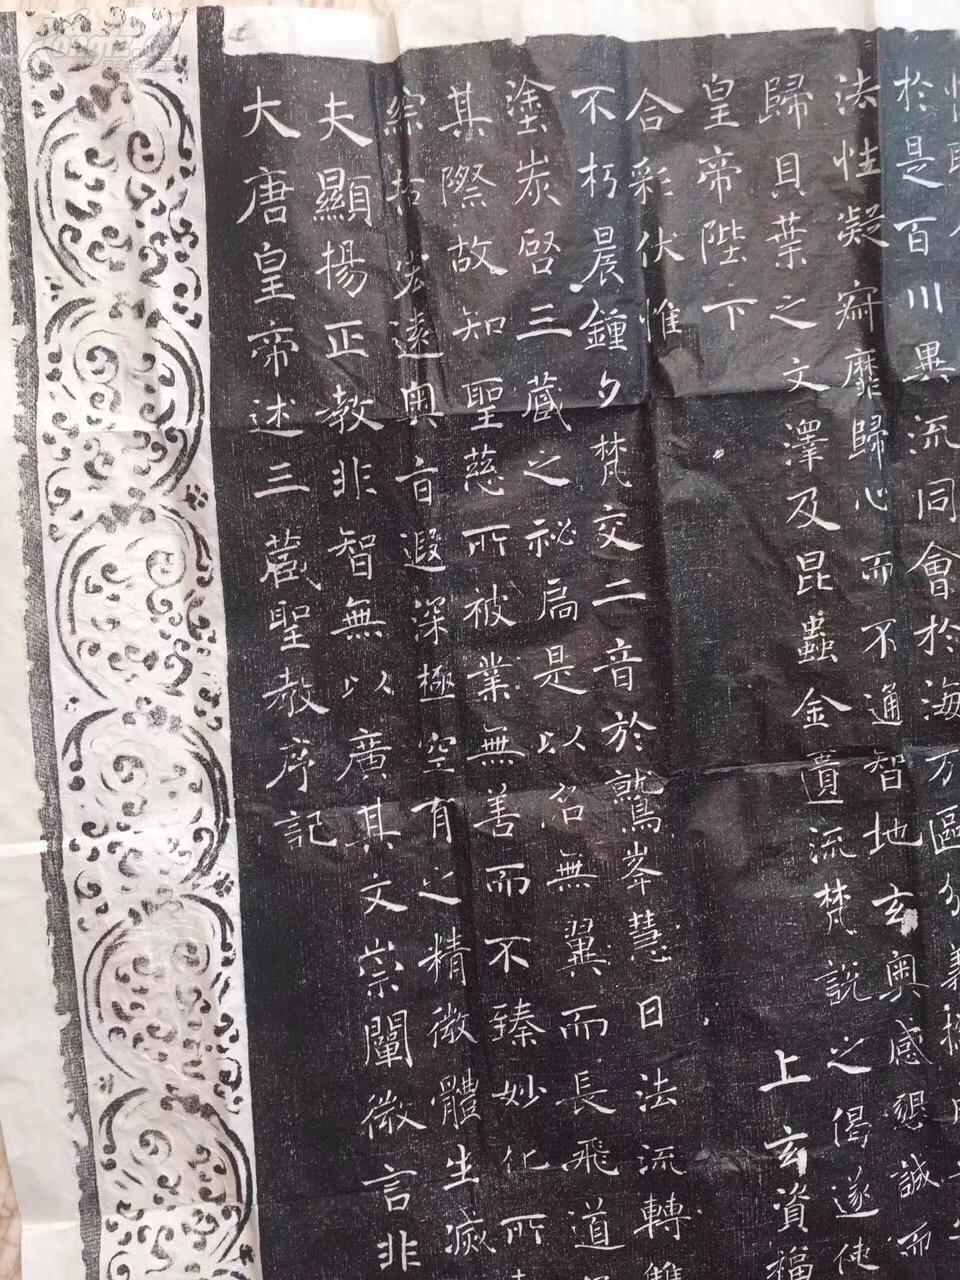 大唐皇帝述三藏聖教序記
夫顯揚正教非智無以廣其文崇闡微言非
綜括宏遠奧旨遐深極空有之精微體生滅
其際故知聖慈所被業無善而不臻妙化所
塗炭啓三藏之祕扃是以名無翼而長飛道
不朽晨鍾夕梵交二音於鷲峯慧日法流轉雙
合彩伏惟
皇帝陛下 上玄資福
歸貝葉之文澤及昆蟲金匱流梵說之偈遂使
法性凝寂靡歸心而不通智地玄奧感懇誠而
於是百川異流同會於海万區分義